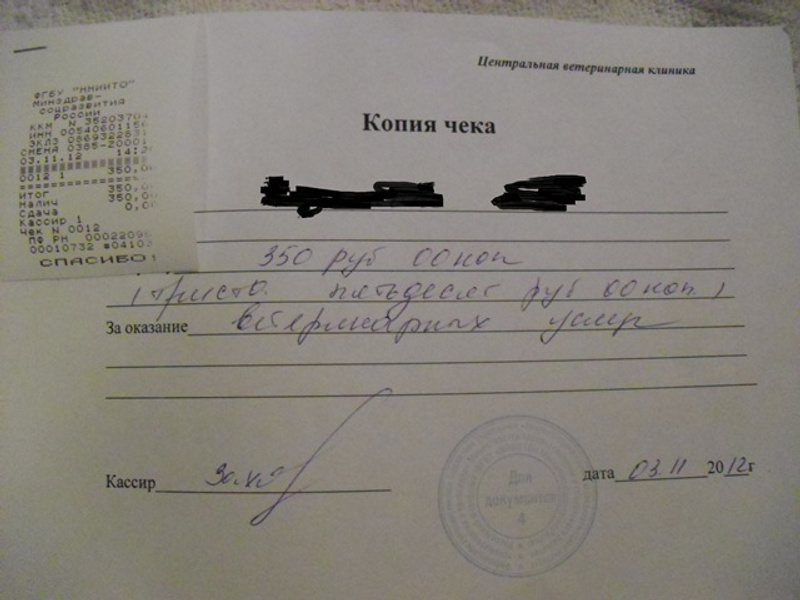 ФГБУ "ННИИТО"
Минздрав-
соцразвития
России
ККМ N 35203704
ИНН 00540601150
ЭКЛЗ 0869322631
СМЕНА 0385-20001
03.11.12 14:2
0012 1 350,0
ИТОГ 350,0
Налич 350,0
Сдача 0,0
Кассир 1
Чек N 0012
ПФ РН 00022095
00010732 #04103
СПАСИБО!
Центральная ветеринарная клиника
Копия чека
350 руб 00 коп
(триста пятьдесят руб 00 коп)
За оказание ветеринарных услуг
Кассир
дата 03.11 2012г
Для
документов
4